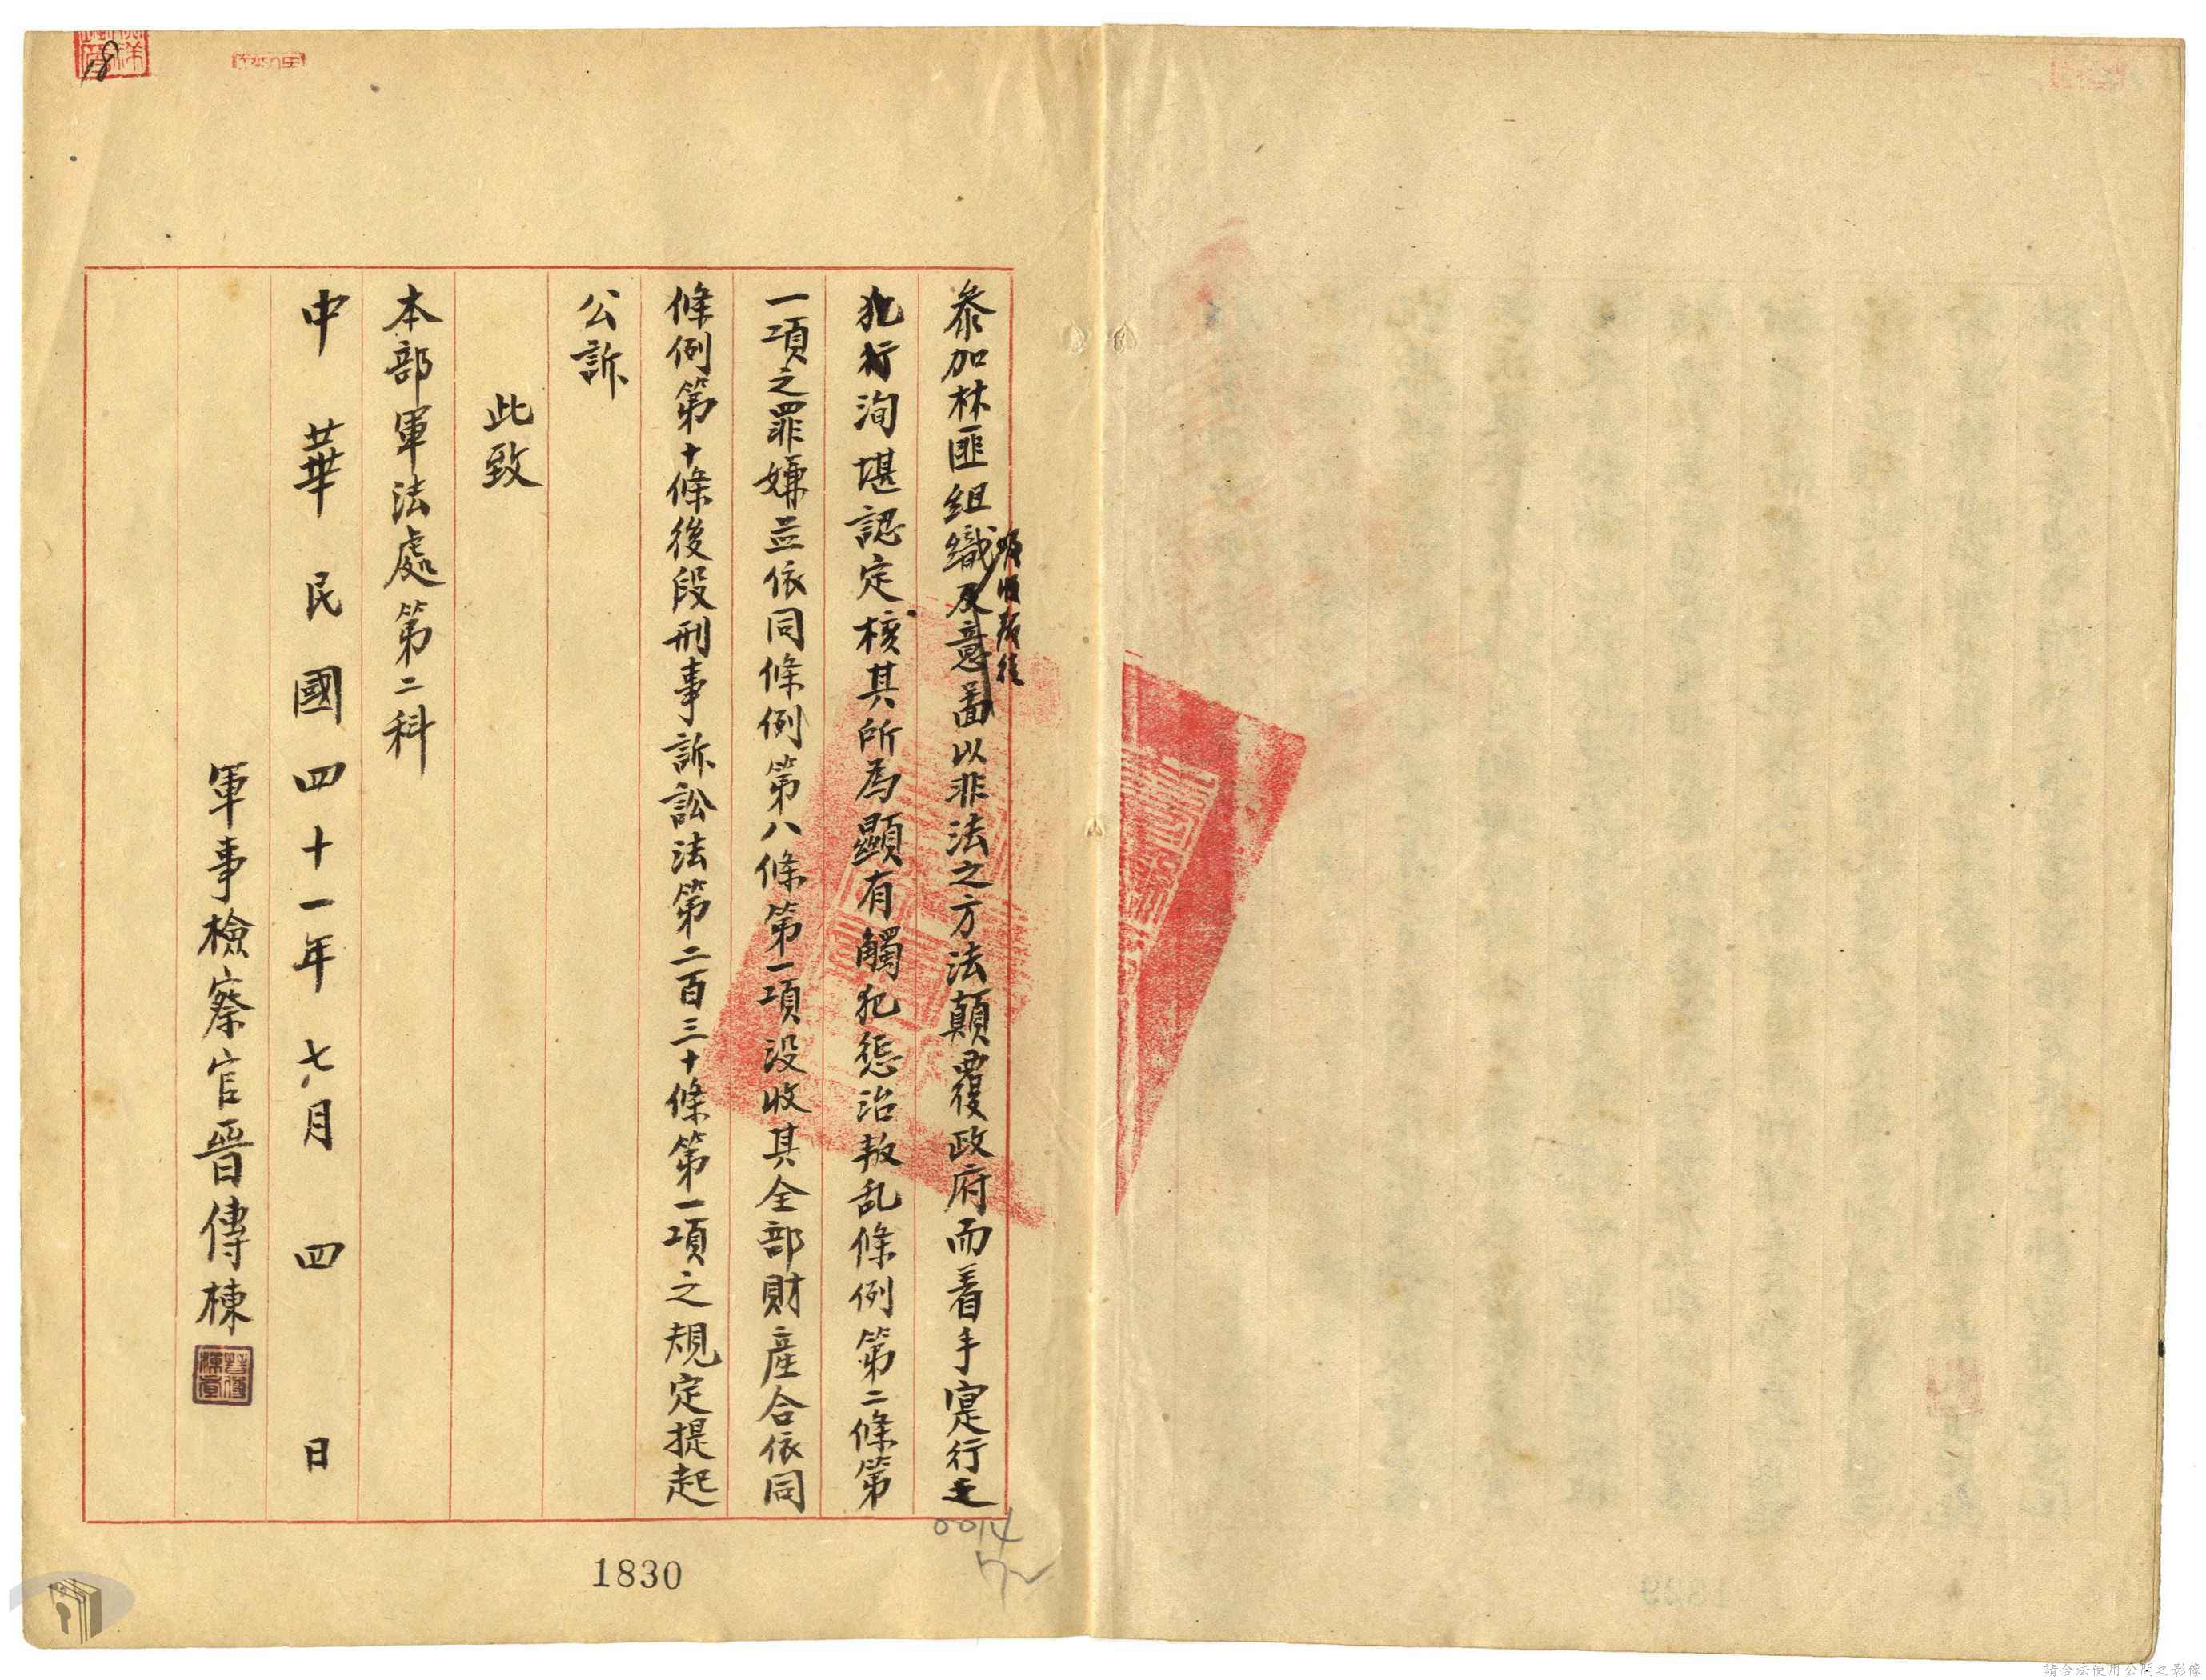 參加林匪組織及意圖以非法之方法顛覆政府而着手寔行之
犯行洵堪認定核其所為顯有觸犯懲治叛乱條例第二條第
一項之罪嫌並依同條例第八條第一項没收其全部財産合依同
條例第十條後段刑事訴訟法第二百三十條第一項之規定提起
公訴
此致
本部軍法處第二科
中華民國四十一年七月四日
軍事檢察官晋傳棟
18
0014
1830
請合法使用公開之影像